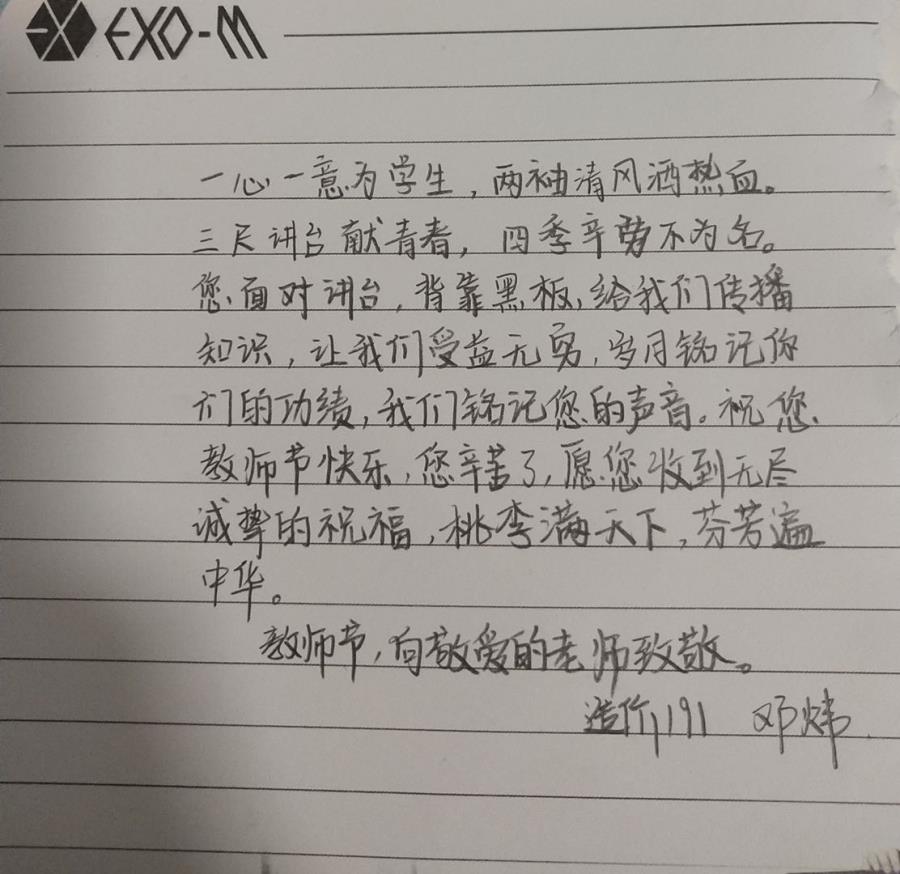 EXO-M
一心一意为学生，两袖清风洒热血。
三尺讲台献青春，四季辛劳不为名。
您面对讲台，背靠黑板，给我们传播
知识，让我们受益无穷，岁月铭记你
们的功绩，我们铭记您的声音。祝您
教师节快乐，您辛苦了，愿您收到无尽
诚挚的祝福，桃李满天下，芬芳遍
中华。
教师节，向敬爱的老师致敬。
造价191 邓炜